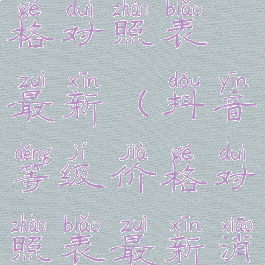 gé duì zhào biǎo
格对照表
zuì xīn dǒu yīn
最新（抖音
děng jí jià gé duì
等级价格对
zhào biǎo zuì xīn xiāo
照表最新消